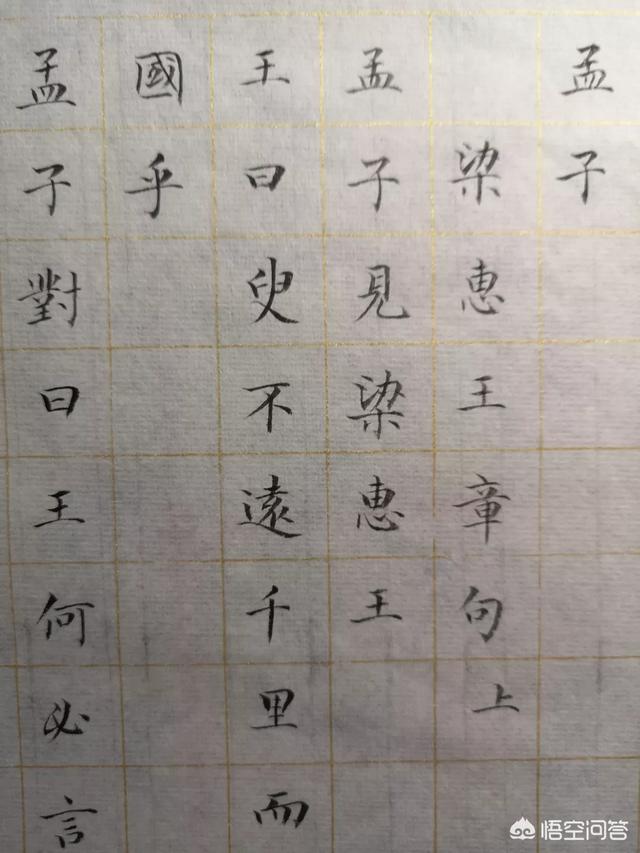 孟子
梁惠王章句上
孟子見梁惠王
王曰叟不遠千里而
國乎
孟子對曰王何必言
悟空问答